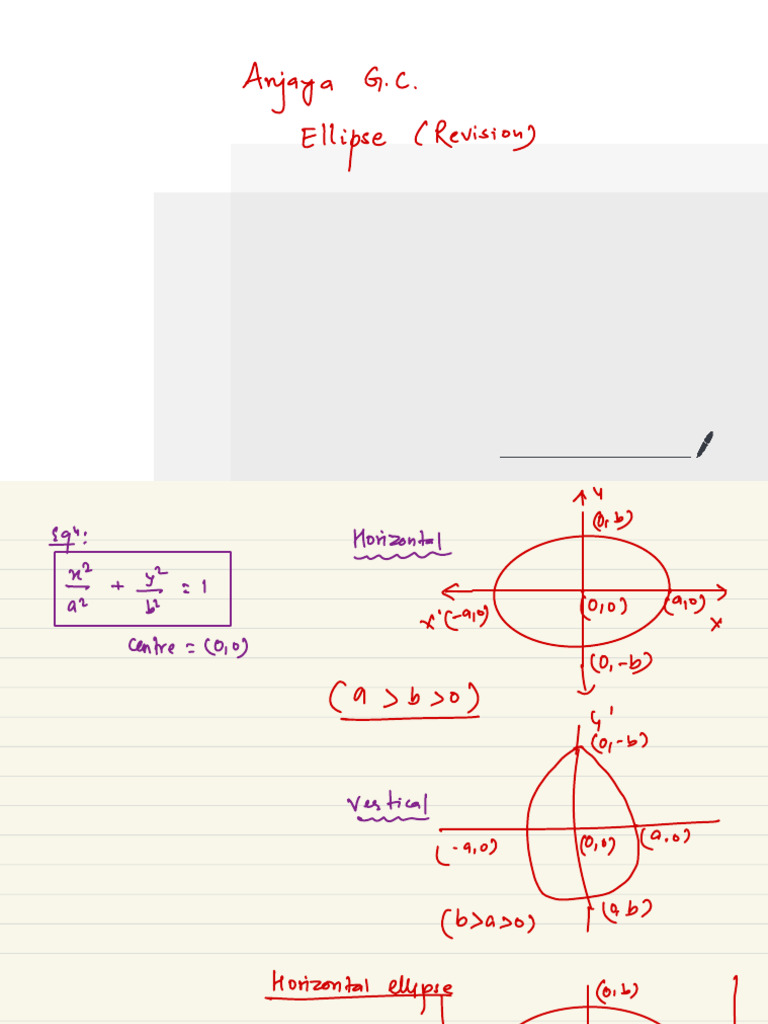 Anjaya G.C.
Ellipse (Revision)
Eqn:
x²/a² + y²/b² = 1
centre = (0,0)
Horizontal
y
(0,b)
x' (-a,0)
(0,0)
(a,0)
x
(0,-b)
y'
(a > b > 0)
Vertical
(0,-b)
(-a,0)
(0,0)
(a,0)
(b>a>0)
(a,b)
Horizontal ellipse
(0,b)